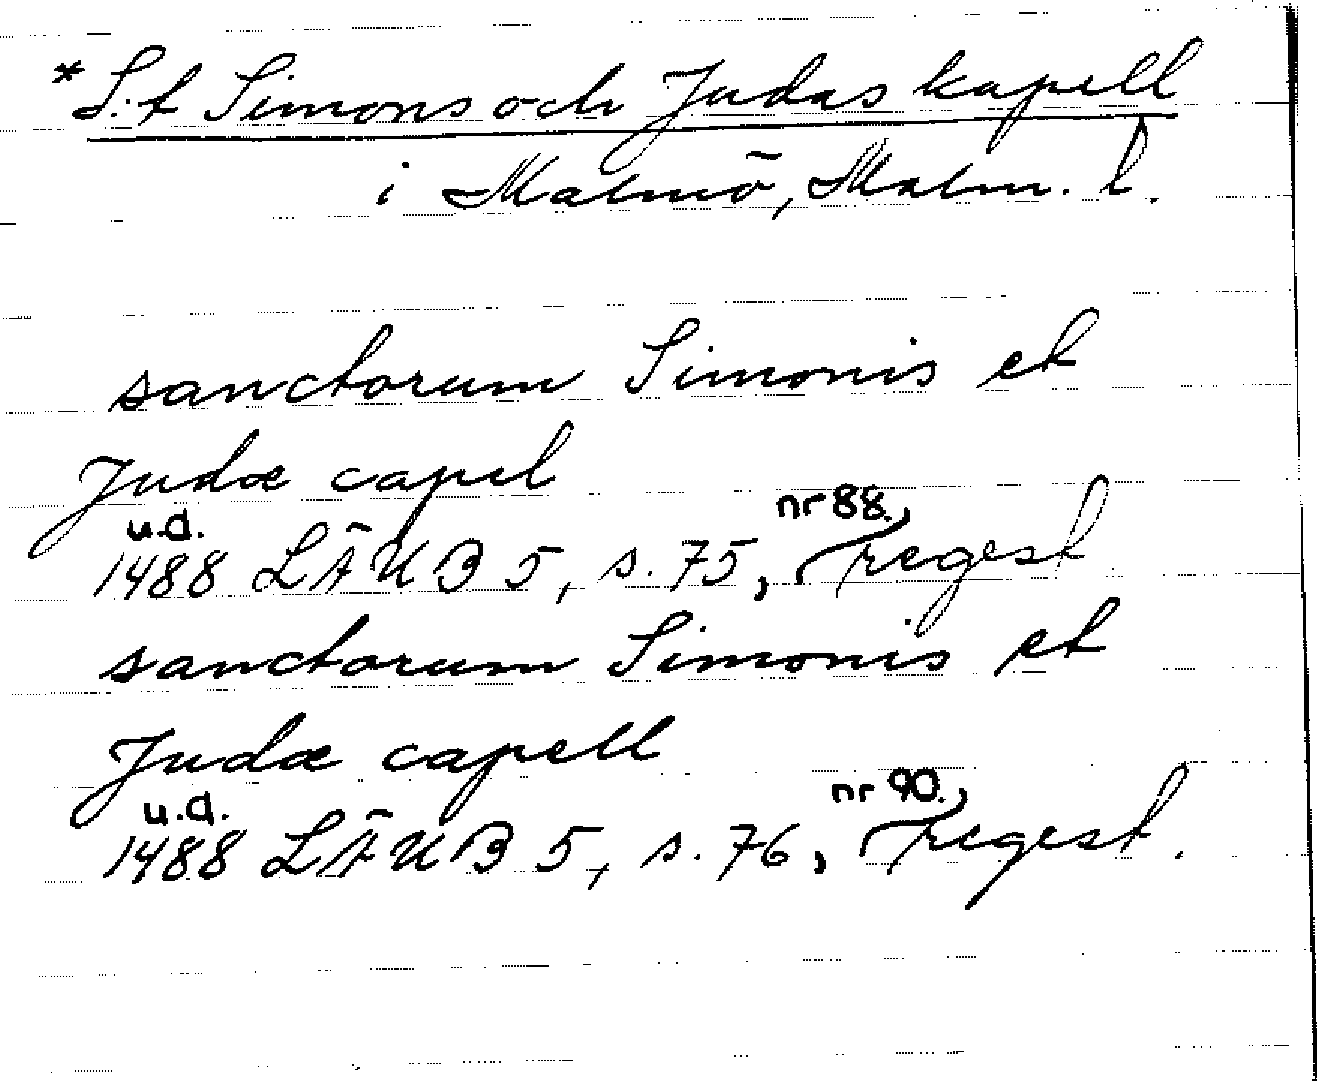 *S:t Simons och Judas kapell
i Malmö, Malm. l.
sanctorum Simonis et
Judæ capel
u.d. nr 88.,
1488 LÄUB 5, s. 75, regest
sanctorum Simonis et
Judæ capell
u.d. nr 90.,
1488 LÄUB 5, s. 76, regest.